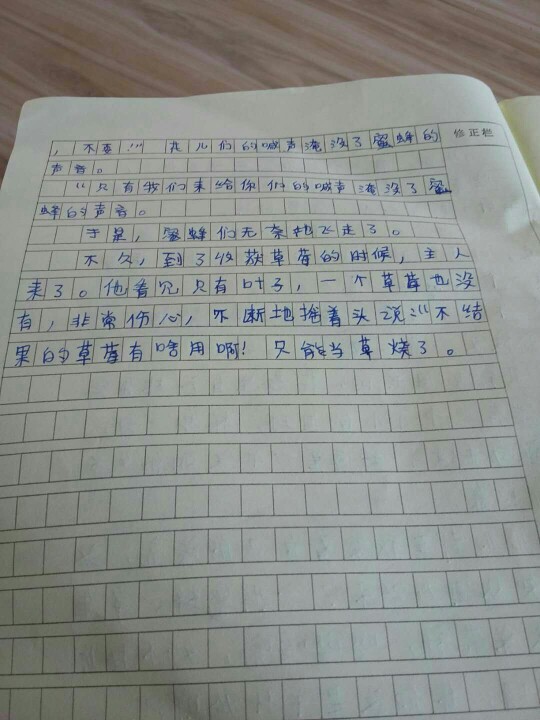 ，不要！”花儿们的喊声淹没了蜜蜂的
修正栏
声音。
“只有我们来给你们的喊声淹没了蜜
蜂的声音。
于是，蜜蜂们无奈地飞走了。
不久，到了收获草莓的时候，主人
来了。他看见只有叶子，一个草莓也没
有，非常伤心，不断地摇着头说：“不结
果的草莓有啥用啊！只能当草烧了。